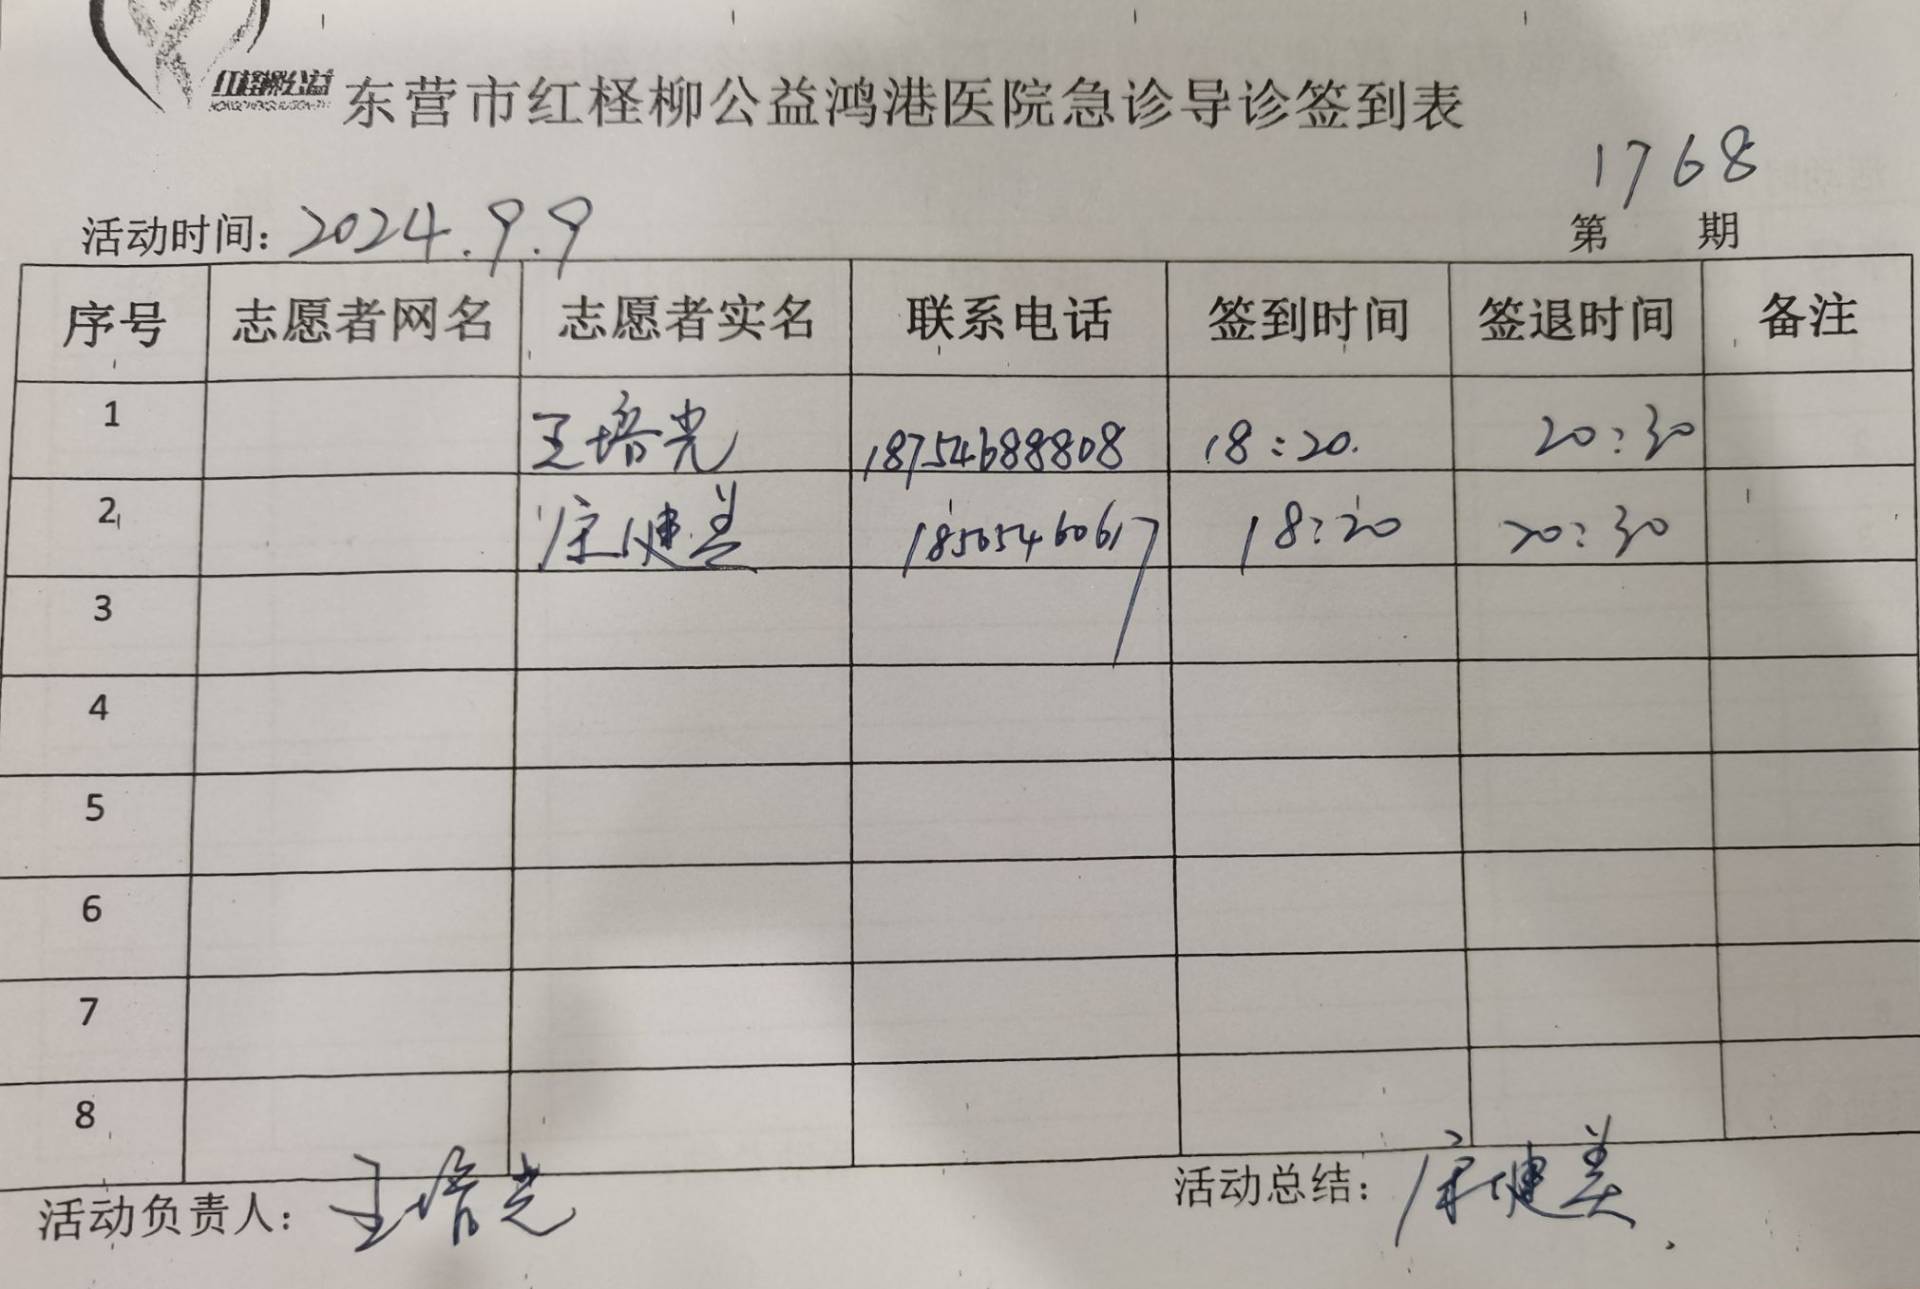 红柽柳公益
东营市红柽柳公益鸿港医院急诊导诊签到表
1768
活动时间：2024.9.9 第 期
序号 志愿者网名 志愿者实名 联系电话 签到时间 签退时间 备注
1 王培光 18754688808 18:20. 20:30
2 健美 18505460617 18:20 20:30
3
4
5
6
7
8
活动负责人：王培光 活动总结：健美